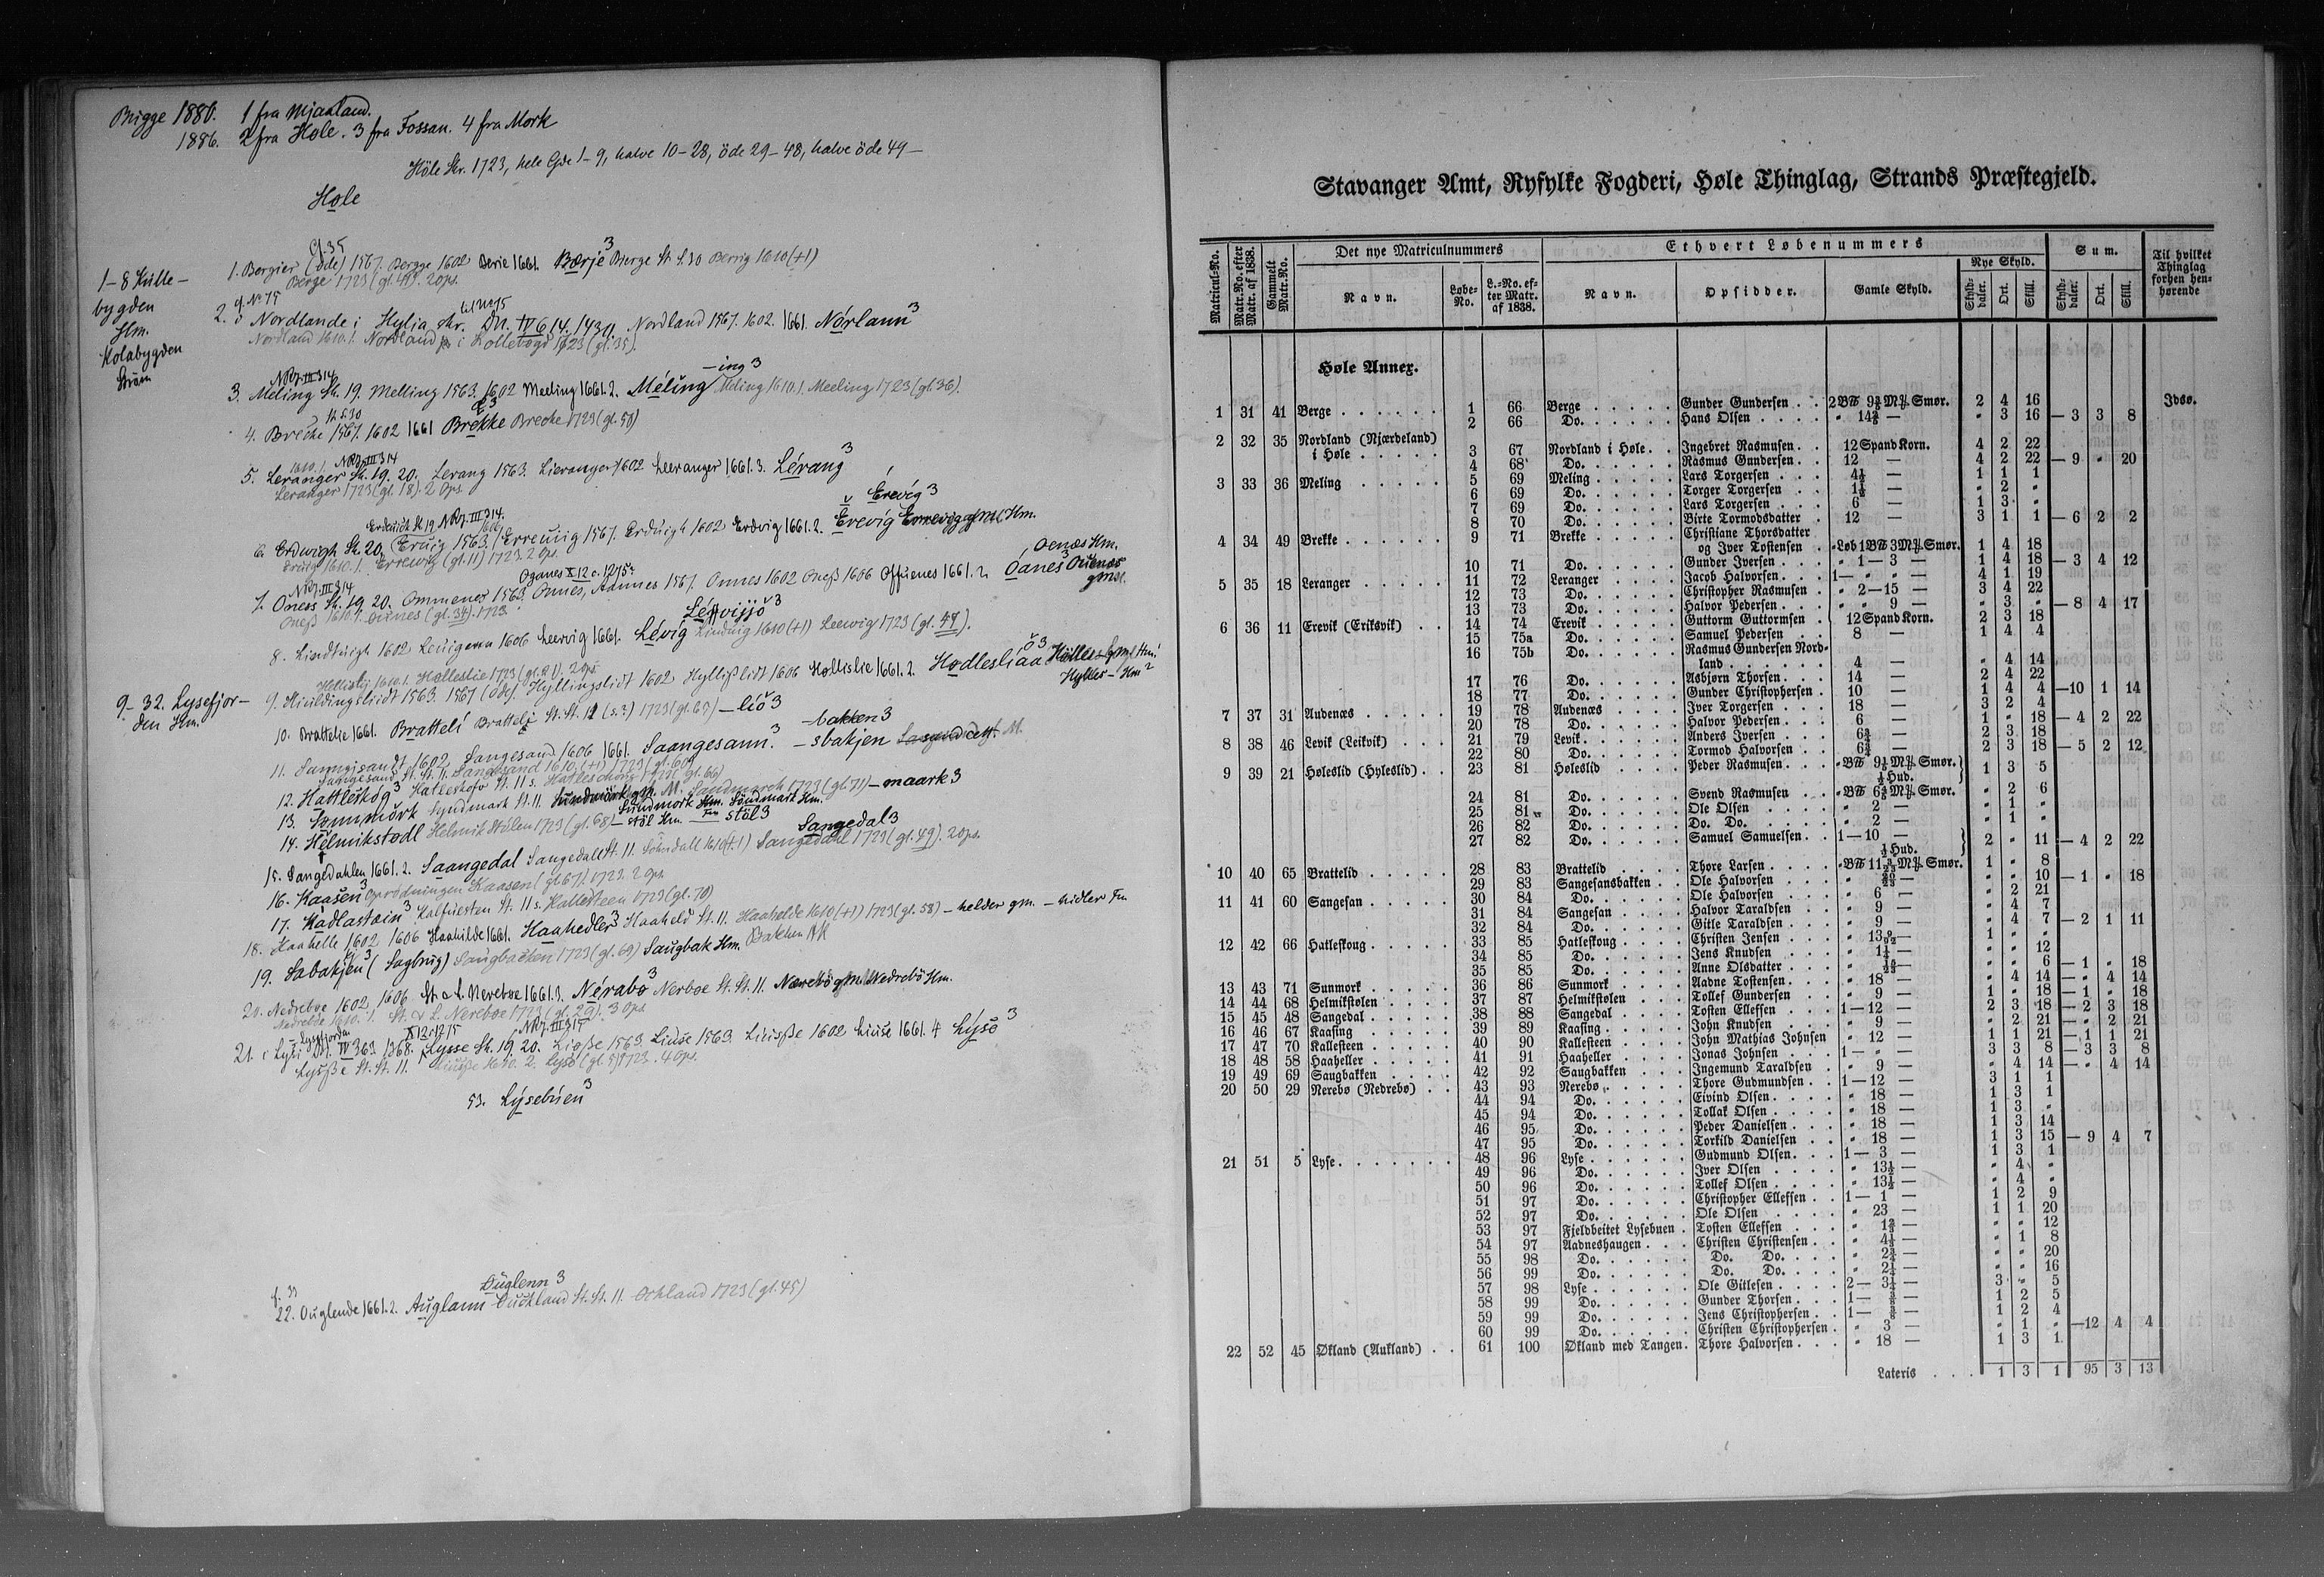 Bugge 1880. 1 fra Mjaaland.
1886. 2 fra Hole. 3 fra Fossan. 4 fra Mork
Höle Skr. 1723, hele Gde 1-9, halve 10-28, öde 29-48, halve öde 49-
Hole
1-8 Kulle-
bygden
Hm.
Kolabygden
Strøm
1. Bergier (öde) 1567. Bergge 1602 Berie 1661. Bærje 3 Bierge St. S. 30 Berrig 1610 (+1)
Berge 1723 (gl. 41). 2 ops.
2. Nordlande i Hylia skr. Dn. IV 614. 1431. Nordland 1567. 1602. 1661. Nórlann 3
Nordland 1610.1. Nordland i Kollebogd 1723 (gl. 35).
-ing 3
3. Meling Sk. 19. Melling 1563. 1602 Meeling 1661.2. Méling Meling 1610.1. Meeling 1723 (gl. 36).
4. Breche 1567. 1602 1661 Brekke Breche 1723 (gl. 59)
5. Leranger Sk. 19. 20. Lerang 1563. Lieranger 1602 Leeranger 1661.3. Lérang 3
Leranger 1723 (gl. 18). 2 Ops.
Erevíg 3
6. Erdwigh Sk. 20. Eruig 1563. Erreuiig 1567. Erduigh 1602 Erdvig 1661.2. Erevíg
Eruig 1610.1. Errewig (gl. 11) 1723. 2 ops.
Oganes X 12 c. 1275
7. Oness Sk. 19 20. Ommenes 1563. Omnes, Aamnes 1567. Onnes 1602 Oneß 1606 Offuenes 1661.2 Óanes 3
Oneß 1610.1. Ounes (gl. 34). 1723.
Oenæs Hm.
8. Lindtuigh 1602 Leuigena 1606 Leervig 1661. Lévíg Linduig 1610 (+1) Leervig 1723 (gl. 47).
9-32. Lysefjor-
den Hm.
Hellislij 1610.1. Holleslie 1723 (gl. 21). 2 ops.
9. Hiuldingsliidt 1563. 1567 (öde). Hyllingslidt 1602 Hyllißlidt 1606 Hollislie 1661.2. Hodlesliaa
10. Brattelie 1661. Brattelí Brattelj St. St. 11 (s. 3.) 1723 (gl. 65) -liö 3
-bakken 3
11. Sanngisandt 1602 Sangesand 1606 1661. Saangesann. 3 -sbakjen
Sangesand St. St. 11. Sangesand 1610 (+1) 1723 (gl. 60)
12. Hattleskög 3 Hatleskofv St. 11 s. Hatleschong 1723 (gl. 66)
13. Sommörk Syndmark St. 11. Sundmörk gm. M. Sandmarch 1723 (gl. 71) -maark 3
Sundmork Hm. Söndmark Hm.
14. Hélmikstødl Helmik Stölen 1723 (gl. 68) -stöl Hm. -stöl 3
Sangedal 3
15. Sangedahlen 1661.2. Saangedal Sangedall St. 11. Söndall 1610 (+1) Sangedahl 1723 (gl. 49). 2 ops.
16. Kaasen 3 Oprödningen Kaasen (gl. 67). 1723. 2 ops.
17. Kadlastain 3 Kalfuesten St. 11 s. Kallesteen 1723 (gl. 70)
18. Haahelle 1602 1606 Haahilde 1661. Haahedler 3 Haaheld St. 11. Haahelde 1610 (+1) 1723 (gl. 58) -helder gm. -hidler Fm
19. Sabakjen 3 (Sagbrug) Saugbachen 1723 (gl. 69) Saugbak Hm. Bakken NK
20. Nedreboe 1602, 1606 St. & L. Nereboe 1661.3. Nérabö 3 Nerboe St. St. 11. Nærebö gm. Nedrebö Hm.
Nedrebö 1610.1. St. & L. Nereboe 1723 (gl. 29). 3 ops.
21. i Lysi Dn. IV 363 1368. Lysse Sk. 19 20. Liusße 1563 Liuse 1563. Liuisße 1602 Liuise 1661.4 Lýsö 3
Lysße St. St. 11. Liusße 1610.2. Lyse (gl. 5) 1723. 4 ops.
53. Lýsebúen 3
Oüglenn 3
22. Ouglende 1661.2. Auglann Ouchland St. St. 11. Ochland 1723 (gl. 45)
Stavanger Amt, Ryfylke Fogderi, Høle Thinglag, Strands Præstegjeld.
Matricul-No. Matr.No. efter Matr. af 1838. Gammelt Matr.No. Det nye Matriculnummers Ethvert Løbenummers Sum. Til hvilket Thinglag forhen henhørende
Navn. Løbe-No. L.-No. efter Matr. af 1838. Navn. Opsidder. Gamle Skyld. Nye Skyld. Skylddaler. Ort. Skill. Skylddaler. Ort. Skill.
Høle Annex.
1 31 41 Berge 1 66 Berge Gunder Gundersen 2 B℔ 9⅗ M℔ Smør. 2 4 16 Idsø.
2 66 Do. Hans Olsen " 14⅖ — " 3 16 — 3 3 8
2 32 35 Nordland (Njærdeland)
i Høle 3 67 Nordland i Høle Ingebret Rasmusen 12 Spand Korn. 4 2 22
4 68 Do. Rasmus Gundersen 12 — 4 2 22 — 9 " 20
3 33 36 Meling 5 69 Meling Lars Torgersen 4½ — 1 1 1
6 69 Do. Torger Torgersen 1½ — " 2 "
7 69 Do. Lars Torgersen 6 — 1 3 "
8 70 Do. Birte Tormodsdatter 12 — 3 1 1 — 6 2 2
4 34 49 Brekke 9 71 Brekke Christiane Thorsdatter
og Iver Tostensen " Løb 1 B℔ 3 M℔ Smør. 1 4 18
10 71 Do. Gunder Iversen " 1 — 3 — 1 4 18 — 3 4 12
5 35 18 Leranger 11 72 Leranger Jacob Halvorsen 1 — " " — 4 1 19
12 73 Do. Christopher Rasmusen " 2 — 15 — 3 4 22
13 73 Do. Halvor Pedersen " " 9 — " 3 " — 8 4 17
6 36 11 Erevik (Eriksvik) 14 74 Erevik Guttorm Guttormsen 12 Spand Korn. 2 3 18
15 75a Do. Samuel Pedersen 8 — 1 4 4
16 75b Do. Rasmus Gundersen Nord-
land 4 — " 4 14
17 76 Do. Asbjørn Thorsen 14 — 2 4 22
18 77 Do. Gunder Christophersen 10 — 1 4 4 — 10 1 14
7 37 31 Audenæs 19 78 Audenæs Iver Torgersen 18 — 3 2 4
20 78 Do. Halvor Pedersen 6 — 1 " 18 — 4 2 22
8 38 46 Levik (Leikvik) 21 79 Levik Anders Iversen 6¾ — 2 3 18
22 80 Do. Tormod Halvorsen 6¾ — 2 3 18 — 5 2 12
9 39 21 Høleslid (Hyleslid) 23 81 Høleslid Peder Rasmusen " B℔ 9⅕ M℔ Smør.
½ Hud. 1 3 5
24 81 Do. Svend Rasmusen " B℔ 6⅘ M℔ Smør. " 2 6
25 81 Do. Ole Olsen " 2 — " 1 "
26 82 Do. Do. Do. " 2 — " 1 "
27 82 Do. Samuel Samuelsen 1 — 10 —
½ Hud. 2 " 11 — 4 2 22
10 40 65 Brattelid 28 83 Brattelid Thore Larsen " B℔ 11 3/23 M℔ Smør. 1 " 8
29 83 Sangesansbakken Ole Halvorsen " 20/23 — " " 10 — 1 " 18
11 41 60 Sangesan 30 84 Do. Ole Halvorsen " 6 — " 2 21
31 84 Sangesan Halvor Taraldsen " 9 — " 4 7
32 84 Do. Gitle Taraldsen " 9 — " 4 7 — 2 1 11
12 42 66 Hatleskoug 33 85 Hatleskoug Christen Jensen " 13 9/92 — 1 " "
34 85 Do. Jens Knudsen " 1¼ — " " 12
35 85 Do. Anne Olsdatter " 15/23 — " " 6 — 1 " 18
13 43 71 Sunmork 36 86 Sunmork Aadne Tostensen " 18 — " 4 14 — " 4 14
14 44 68 Helmikstølen 37 87 Helmikstølen Tollef Gundersen " 9 — 1 " 18 — 1 " 18
15 45 48 Sangedal 38 88 Sangedal Tosten Ellefsen 1 — 12 — 2 3 18 — 2 3 18
16 46 67 Kaasing 39 89 Kaasing John Knudsen " 9 — " 2 21 — " 2 21
17 47 70 Kallesteen 40 90 Kallesteen John Mathias Johnsen " 12 — 1 1 21 — 1 1 21
18 48 58 Haaheller 41 91 Haaheller Jonas Johnsen 1 — " — 3 3 8 — 3 3 8
19 49 69 Saugbakken 42 92 Saugbakken Ingemund Taraldsen " 9 — " 4 14 — " 4 14
20 50 29 Nerebø (Nedrebø) 43 93 Nerebø Thore Gudmundsen 1 — 12 — 3 1 1
44 94 Do. Eivind Olsen " 18 — 1 3 1
45 94 Do. Tollak Olsen " 18 — 1 3 "
46 95 Do. Peder Danielsen " 18 — 1 3 14
47 95 Do. Torkild Danielsen " 18 — 1 3 15 — 9 4 7
21 51 5 Lyse 48 96 Lyse Gudmund Olsen 1 — 3 — 1 3 1
49 96 Do. Iver Olsen " 13½ — " 4 "
50 96 Do. Tollef Olsen " 13½ — " 4 "
51 97 Do. Christopher Ellefsen 1 — 1 — 1 2 9
52 97 Do. Ole Olsen " 23 — 1 1 20
53 97 Fjeldbeitet Lysebuen Tosten Ellefsen " 1⅔ — " " 12
54 97 Aadneshaugen Christen Christensen " 4⅓ — " 1 8
55 98 Do. Do. Do. " 2¾ — " " 20
56 99 Do. Do. Do. " 2¼ — " " 16
57 98 Lyse Ole Gitlesen 2 — 3¼ — 3 " 5
58 99 Do. Gunder Thorsen 1 — ⅜ — 1 2 5
59 99 Do. Jens Christophersen 1 — ⅜ — 1 2 4
60 99 Do. Christen Christophersen " 3 — " 1 " — 12 4 4
22 52 45 Økland (Aukland) 61 100 Økland med Tangen Thore Halvorsen " 18 — 1 3 1
Lateris 1 3 1 95 3 13